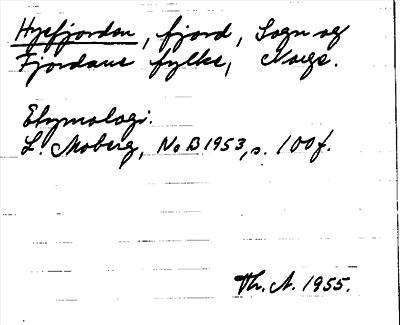 Hysfjorden, fjord, Sogn og
Fjordane fylke, Norge.
Etymologi:
L. Moberg, NoB 1953, s. 100f.
Th. A. 1955.